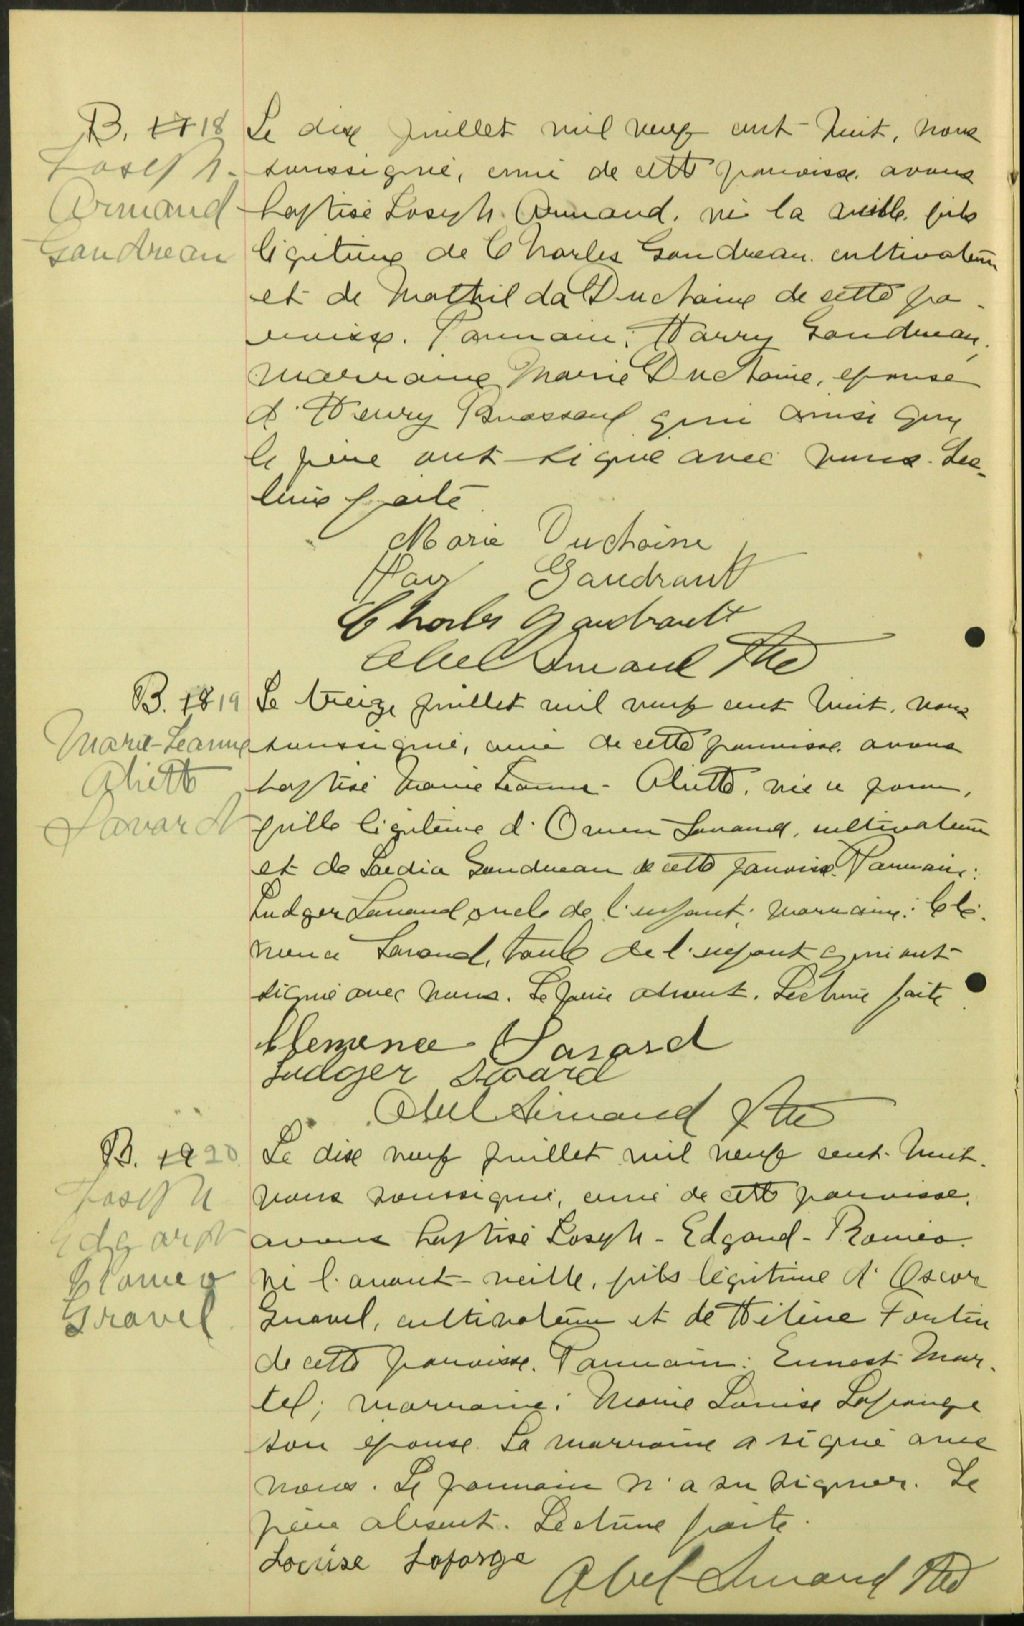 B. 17 18
Joseph-
Armand
Gaudreau
Le dix juillet mil neuf cent huit, nous
soussigné, curé de cette paroisse avons
baptisé Joseph Armand, né la veille, fils
légitime de Charles Gaudreau cultivateur
et de Mathilda Duchaine de cette pa-
roisse. Parrain: Harry Gaudreau,
marraine Marie Duchaine, épouse
d'Henry Brassard qui ainsi que
le père ont signé avec nous. Lec-
ture faite
Marie Duchaine
Gaudrault
Charles Gaudrault
Abel Simard Ptre
B. 18 19
Marie-Jeanne
Aliette
Savard
Le treize juillet mil neuf cent huit, nous
soussigné, curé de cette paroisse avons
baptisé Marie Jeanne-Aliette, née ce jour,
fille légitime d'Omer Savard, cultivateur
et de Lædia Gaudreau de cette paroisse. Parrain:
Ludger Savard oncle de l'enfant; marraine: Clé-
mence Savard, tante de l'enfant qui ont
signé avec nous. Le père absent. Lecture faite
Clemence Savard
Ludger Savard
Abel Simard Ptre
B. 19 20
Joseph
Edgard
Romeo
Gravel
Le dix neuf juillet mil neuf cent-huit-
nous soussigné, curé de cette paroisse,
avons baptisé Joseph-Edgard-Romeo
né l'avant-veille, fils légitime d'Oscar
Gravel, cultivateur et de Hélène Fortin
de cette paroisse. Parrain: Ernest Mar-
tel; marraine: Marie Louise Laforge
son épouse. La marraine a signé avec
nous. Le parrain n'a su signer. Le
père absent. Lecture faite.
Louise Laforge
Abel Simard Ptre